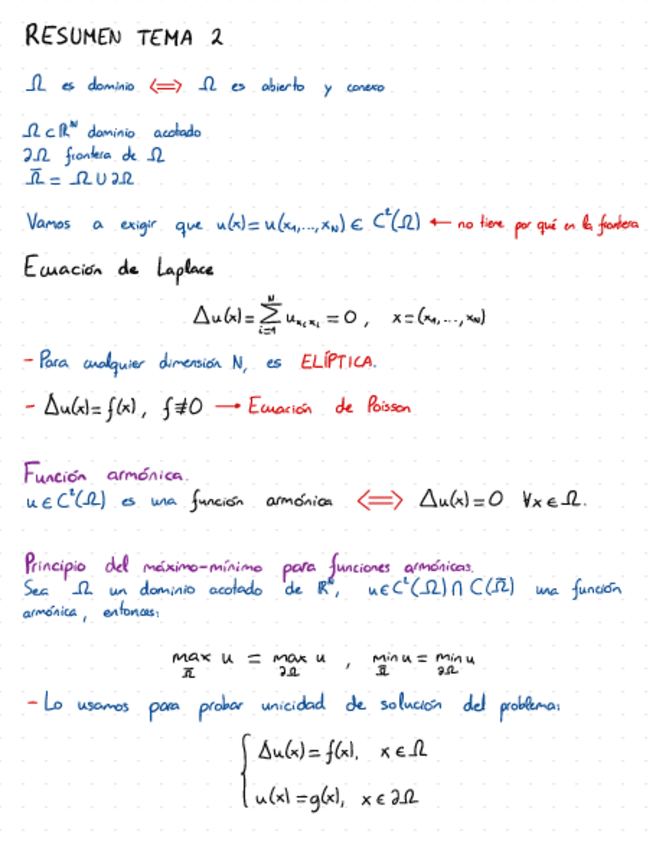 RESUMEN TEMA 2
Ω es dominio ⟺ Ω es abierto y conexo
Ω ⊂ ℝᴺ dominio acotado
∂Ω frontera de Ω
Ω̄ = Ω ∪ ∂Ω
Vamos a exigir que u(x) = u(x₁,...,x_N) ∈ C²(Ω) ← no tiene por qué en la frontera
Ecuación de Laplace
Δu(x) = ∑_{i=1}^{N} u_{x_i x_i} = 0, x = (x₁,...,x_N)
- Para cualquier dimensión N, es ELÍPTICA.
- Δu(x) = f(x), f ≢ 0 → Ecuación de Poisson
Función armónica.
u ∈ C²(Ω) es una función armónica ⟺ Δu(x) = 0 ∀x ∈ Ω.
Principio del máximo-mínimo para funciones armónicas.
Sea Ω un dominio acotado de ℝᴺ, u ∈ C²(Ω) ∩ C(Ω̄) una función
armónica, entonces:
max_{Ω̄} u = max_{∂Ω} u , min_{Ω̄} u = min_{∂Ω} u
- Lo usamos para probar unicidad de solución del problema:
{ Δu(x) = f(x), x ∈ Ω
u(x) = g(x), x ∈ ∂Ω